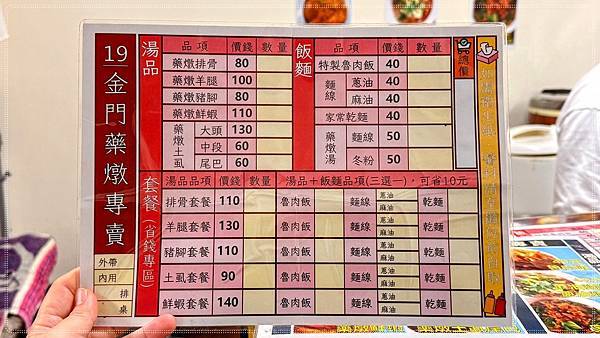 19金門藥燉專賣
外帶
內用 排
桌
湯品 品項 價錢 數量
藥燉排骨 80
藥燉羊腿 100
藥燉豬腳 80
藥燉鮮蝦 110
藥燉土虱 大頭 130
中段 60
尾巴 60
飯麵 品項 價錢 數量
特製魯肉飯 40
麵線 蔥油 40
麻油 40
家常乾麵 40
藥燉湯 麵線 50
冬粉 50
總價
套餐(省錢專區) 湯品品項 價錢 數量 湯品+飯麵品項(三選一),可省10元
排骨套餐 110 魯肉飯 麵線 蔥油 麻油 乾麵
羊腿套餐 130 魯肉飯 麵線 蔥油 麻油 乾麵
豬腳套餐 110 魯肉飯 麵線 蔥油 麻油 乾麵
土虱套餐 90 魯肉飯 麵線 蔥油 麻油 乾麵
鮮蝦套餐 140 魯肉飯 麵線 蔥油 麻油 乾麵